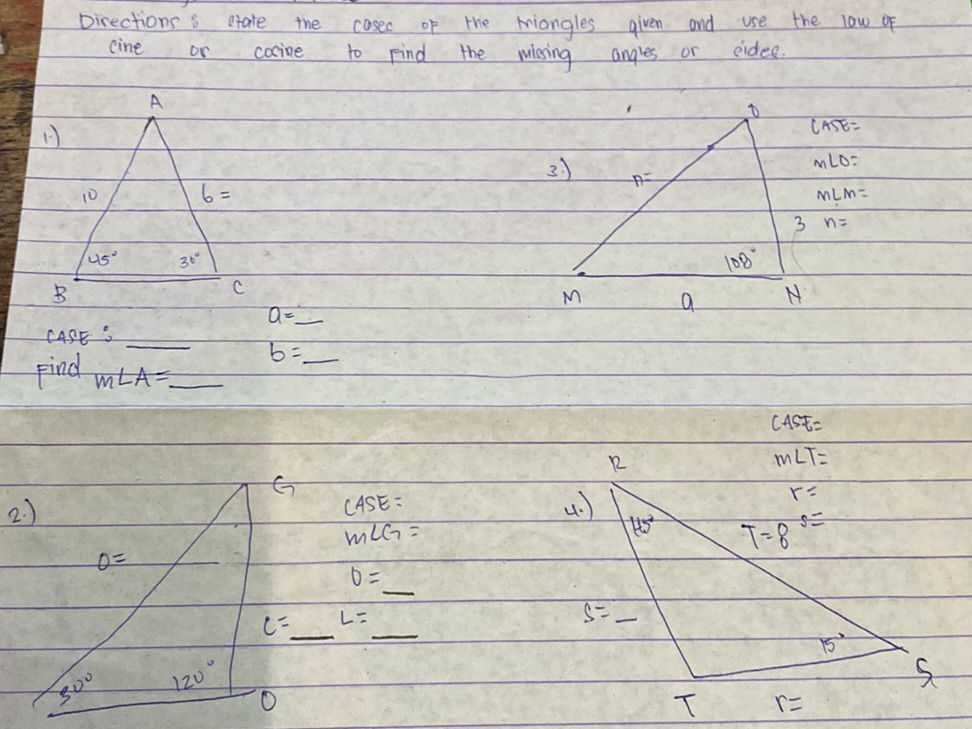 Directions : state the cases of the triangles given and use the law of
sine or cosine to find the missing angles or sides.
1.)
A
10
b =
45°
30°
B
C
CASE : ___
a = __
b = __
Find m∠A = ___
3.)
O
n=
108°
M
a
N
3
CASE=
m∠O=
m∠M=
n=
2.)
G
O=
30°
120°
O
CASE=
m∠G=
O = __
L= ___
L= ___
4.)
R
45°
T=8
S= _
15°
T
S
r=
CASE=
m∠T=
r=
s=